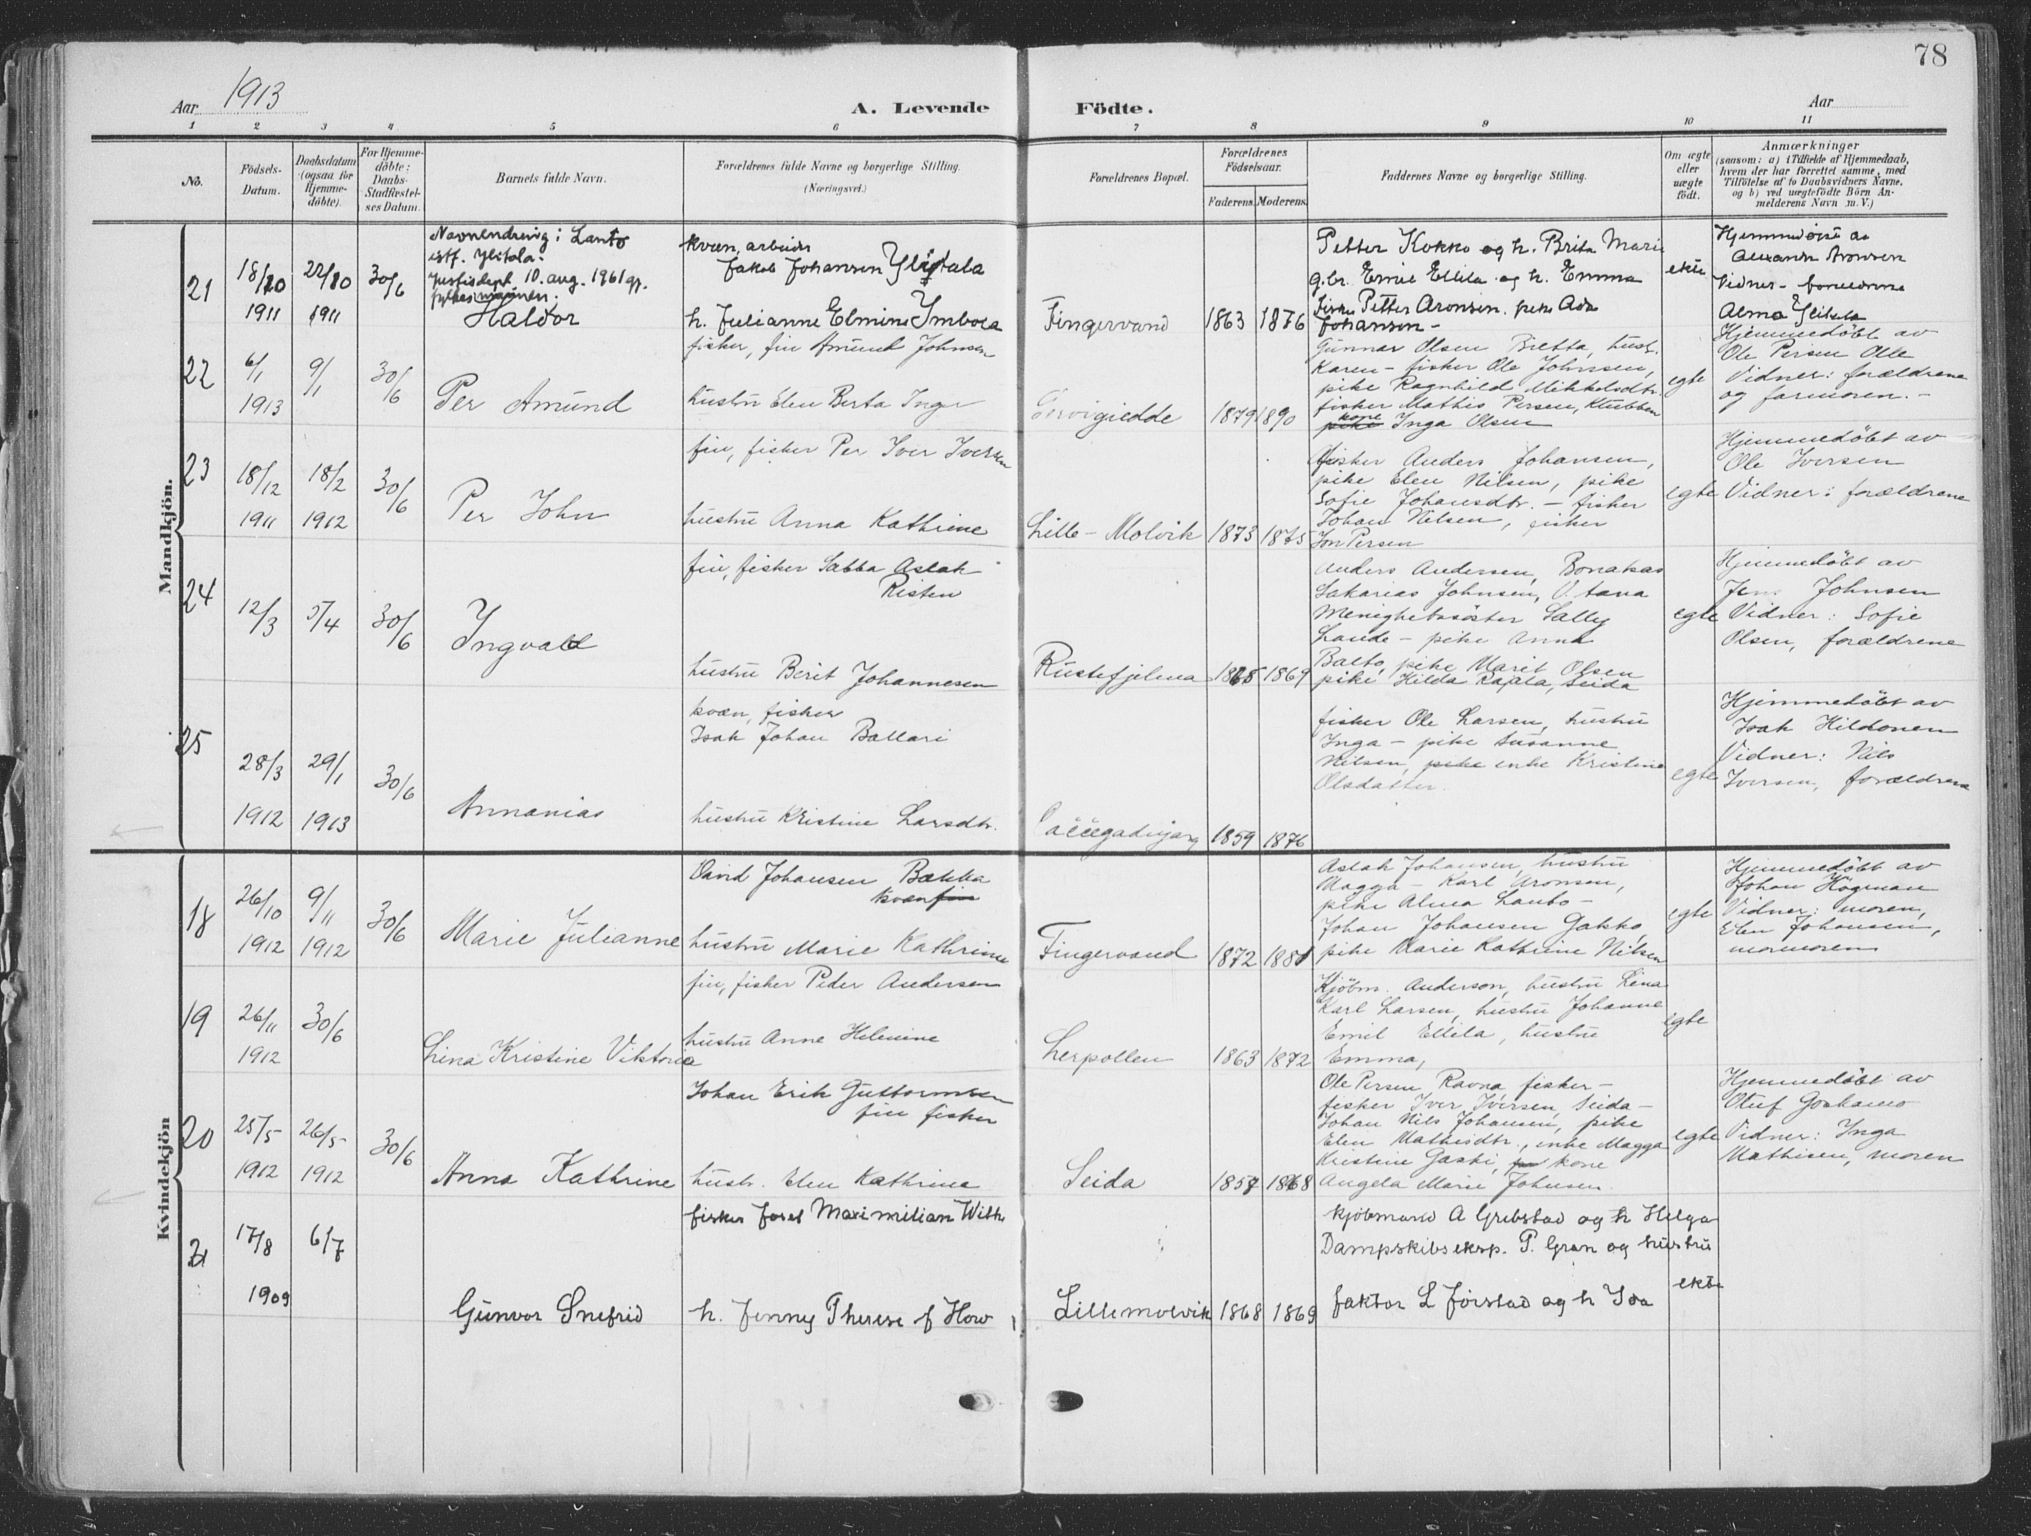 78
Aar 1913
A. Levende Födte.
Aar
1 2 3 4 5 6 7 8 9 10 11
No.
Födsels-
Datum.
Daabsdatum
(ogsaa for
Hjemme-
döbte).
For Hjemme-
döbte:
Daabs-
Stadfæstel-
ses Datum.
Barnets fulde Navn.
Forældrenes fulde Navne og borgerlige Stilling.
(Næringsvei.)
Forældrenes Bopæl.
Forældrenes
Födselsaar.
Faderens.
Moderens.
Faddernes Navne og borgerlige Stilling.
Om ægte
eller
uægte
födt.
Anmærkninger
(saasom: a) i Tilfælde af Hjemmedaab,
hvem der har forrettet samme, med
Tilföielse af to Daabsvidners Navne,
og b) ved uægtefödte Börn An-
melderens Navn m. V.)
Mandkjön.
21
18/10
1911
22/10
1911
30/6
Navnendring: Lanto
istf. Ylitalo.
Justisdept. 10. aug. 1961 gj.
fylkesmannen.
Haldor
kvæn, arbeider
Jakob Johansen Ylitala
h. Julianne Elmine Imboea
Fingervand
1863
1876
Petter Kokko og h. Brita Marie
g.br. Emil Ellila og h. Emma
fisk. Petter Aronsen. pike Ada
Johansen -
ekte
Hjemmedøpt av
Alexander Aronsen
Vidner - foreldrene
Alma Ylitalo
22
6/1
1913
9/1
30/6
Per Amund
fisker, fin Amund Johnsen
hustru Elen Berta Inger
Gervigiedde
1879
1890
Gunnar Olsen Bietta, hust.
Karen - fisker Ole Johnsen,
pike Ragnhild Mikkelsdtr.
fisker Mathis Persen, Klubben
kone
pike Inga Olsen
egte
Hjemmedøbt av
Ole Persen Olle
Vidner: forældrene
og farmoren. -
23
18/12
1911
18/2
1912
30/6
Per John
fin, fisker Per Iver Iversen
hustru Anna Kathrine
Lille-Molvik
1873
1875
fisker Anders Johansen,
pike Elen Nilsen, pike
Sofie Johansdtr. - fisker
Johan Nilsen, fisker
Jon Persen
egte
Hjemmedøbt av
Ole Iversen
Vidner: forældrene
24
12/3
5/4
30/6
Ingvald
fin, fisker Sabba Aslak
Risten
hustru Berit Johannesen
Rustefjelma
1865
1869
Anders Andersen, Bonakas
Sakarias Johnsen, V. tana
Menighetssøster Sally
Lande - pike Anna
Balto, pike Marit Olsen
pike Hilda Rajala, Seida
egte
Hjemmedøbt av
Jens Johnsen
Vidner: Sofie
Olsen, forældrene
25
28/3
1912
29/1
1913
30/6
Annanias
kvæn, fisker
Isak Johan Ballari
hustru Kristine Larsdtr.
1859
1876
fisker Ole Larsen, hustru
Inga - pike Susanne
Nilsen, pike enke Kristine
Olsdatter.
egte
Hjemmedøbt av
Isak Hildonen
Vidner: Nils
Iversen, forældrene
Kvindekjön
18
26/10
1912
9/11
1912
30/6
Marie Julianne
David Johansen Bækka
kvæn fin
hustru Marie Kathrine
Fingervand
1872
1881
Aslak Johansen, hustru
Magga - Karl Aronsen,
pike Alma Lanto -
Johan Johansen Gakko,
pike Marie Kathrine Nilsen
egte
Hjemmedøbt av
Johan Högman
Vidner: moren,
Elen Johansen,
mormoren
19
26/11
1912
30/6
Lina Kristine Viktoria
fin, fisker Peder Andersen
hustru Anne Helmine
Lerpollen
1863
1872
Kjöbm. Anderson, hustru Lina
Karl Larsen, hustru Johanne
Emil Ellila, hustru
Emma,
egte
20
25/5
1912
26/5
1912
30/6
Anna Kathrine
Johan Erik Guttormsen
fin fisker
hustr. Elen Kathrine
Seida
1857
1868
Ole Persen Ravna fisker -
fisker Iver Iversen, Seida -
Johan Nils Johansen, pike
Elen Mathisdtr., enke Magga
Kristine Gaski, kone
Angela Marie Johnsen.
egte
Hjemmedøbt av
Oluf Goskamo
Vidner: Inga
Mathisen, moren
21
17/8
1909
6/7
Gunvor Snefrid
fisker Josef Maximilian With
h. Jenny Therese f How
Lillemolvik
1868
1869
kjøbmand A Grebstad og h Helga
Dampskibseksp. P. Gran og hustru
faktor L Jørstad og h Ida
ekte